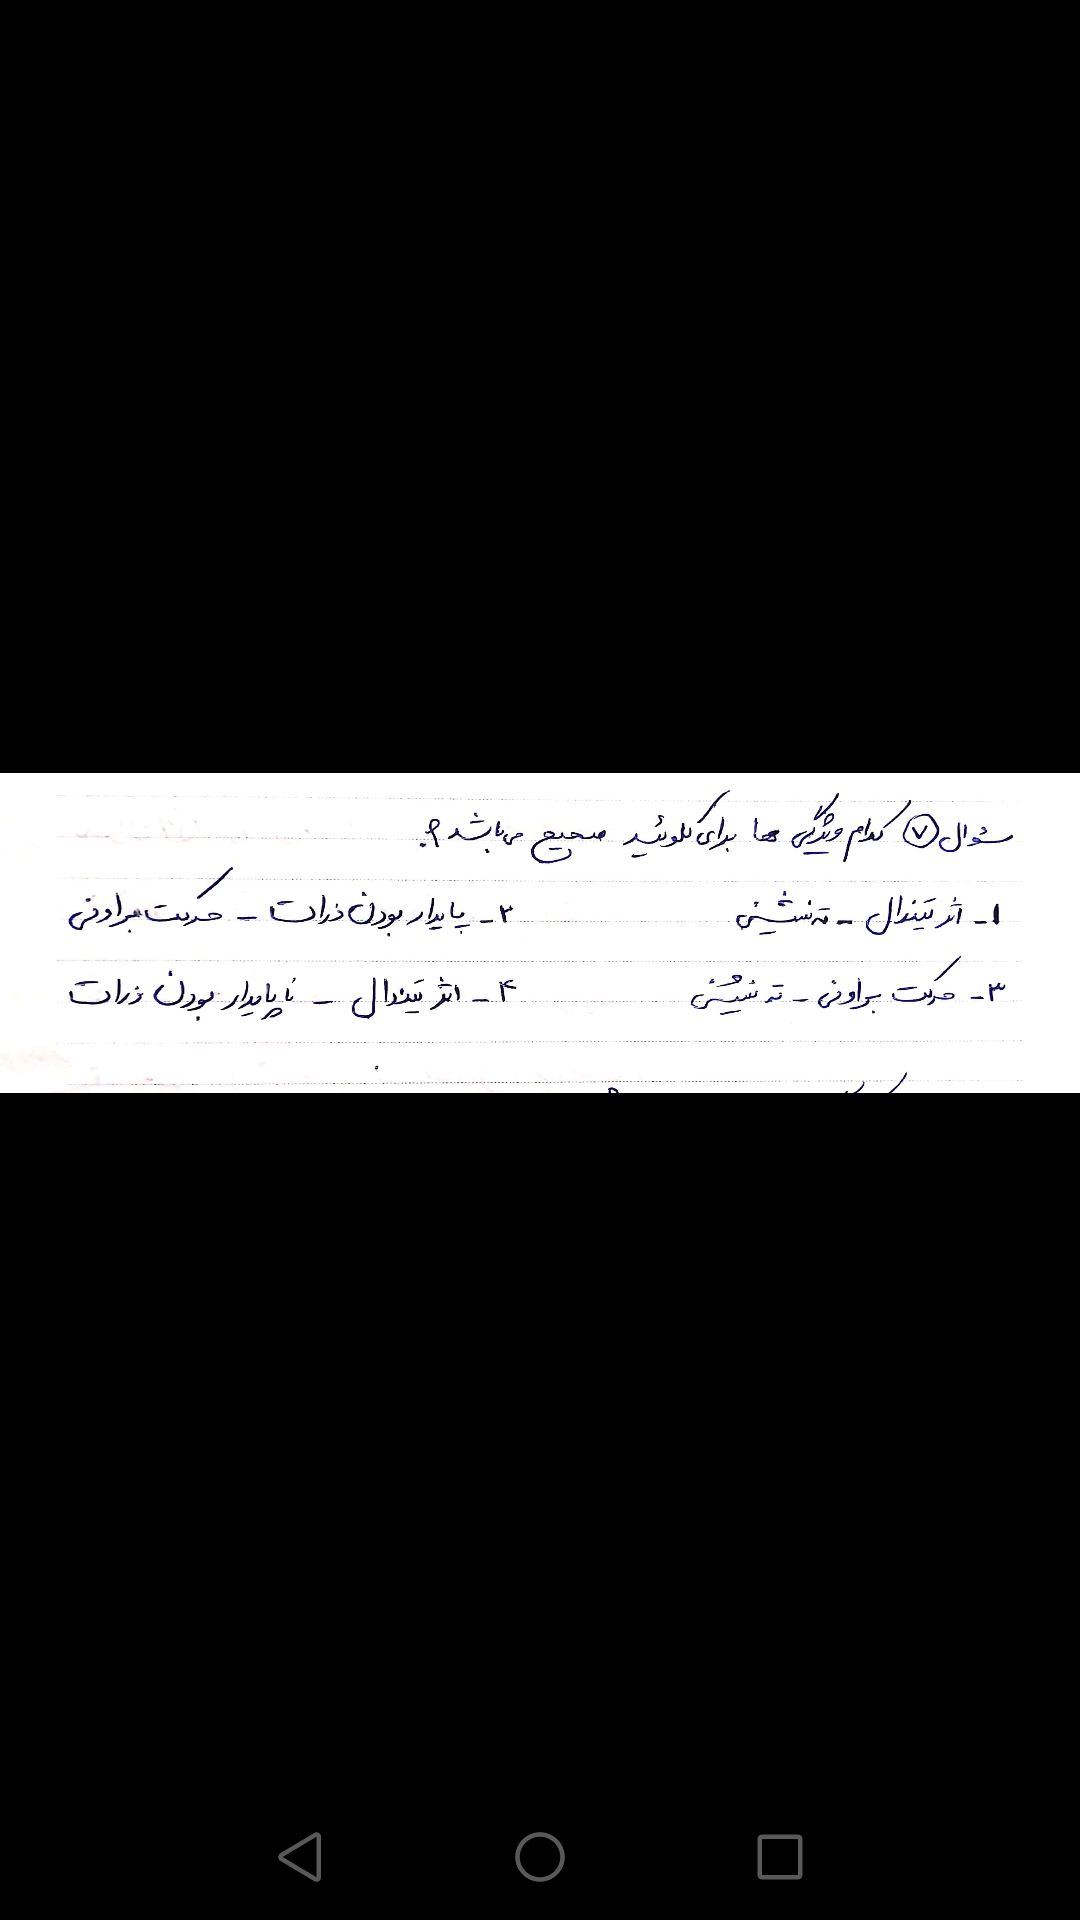 سئوال ۷ کدام ویژگی ها برای کلوئید صحیح می‌باشد؟
۱- اثر تیندال - ته نشینی ۲- پایدار بودن ذرات - حرکت براونی
۳- حرکت براونی - ته نشینی ۴- اثر تیندال - ناپایدار بودن ذرات